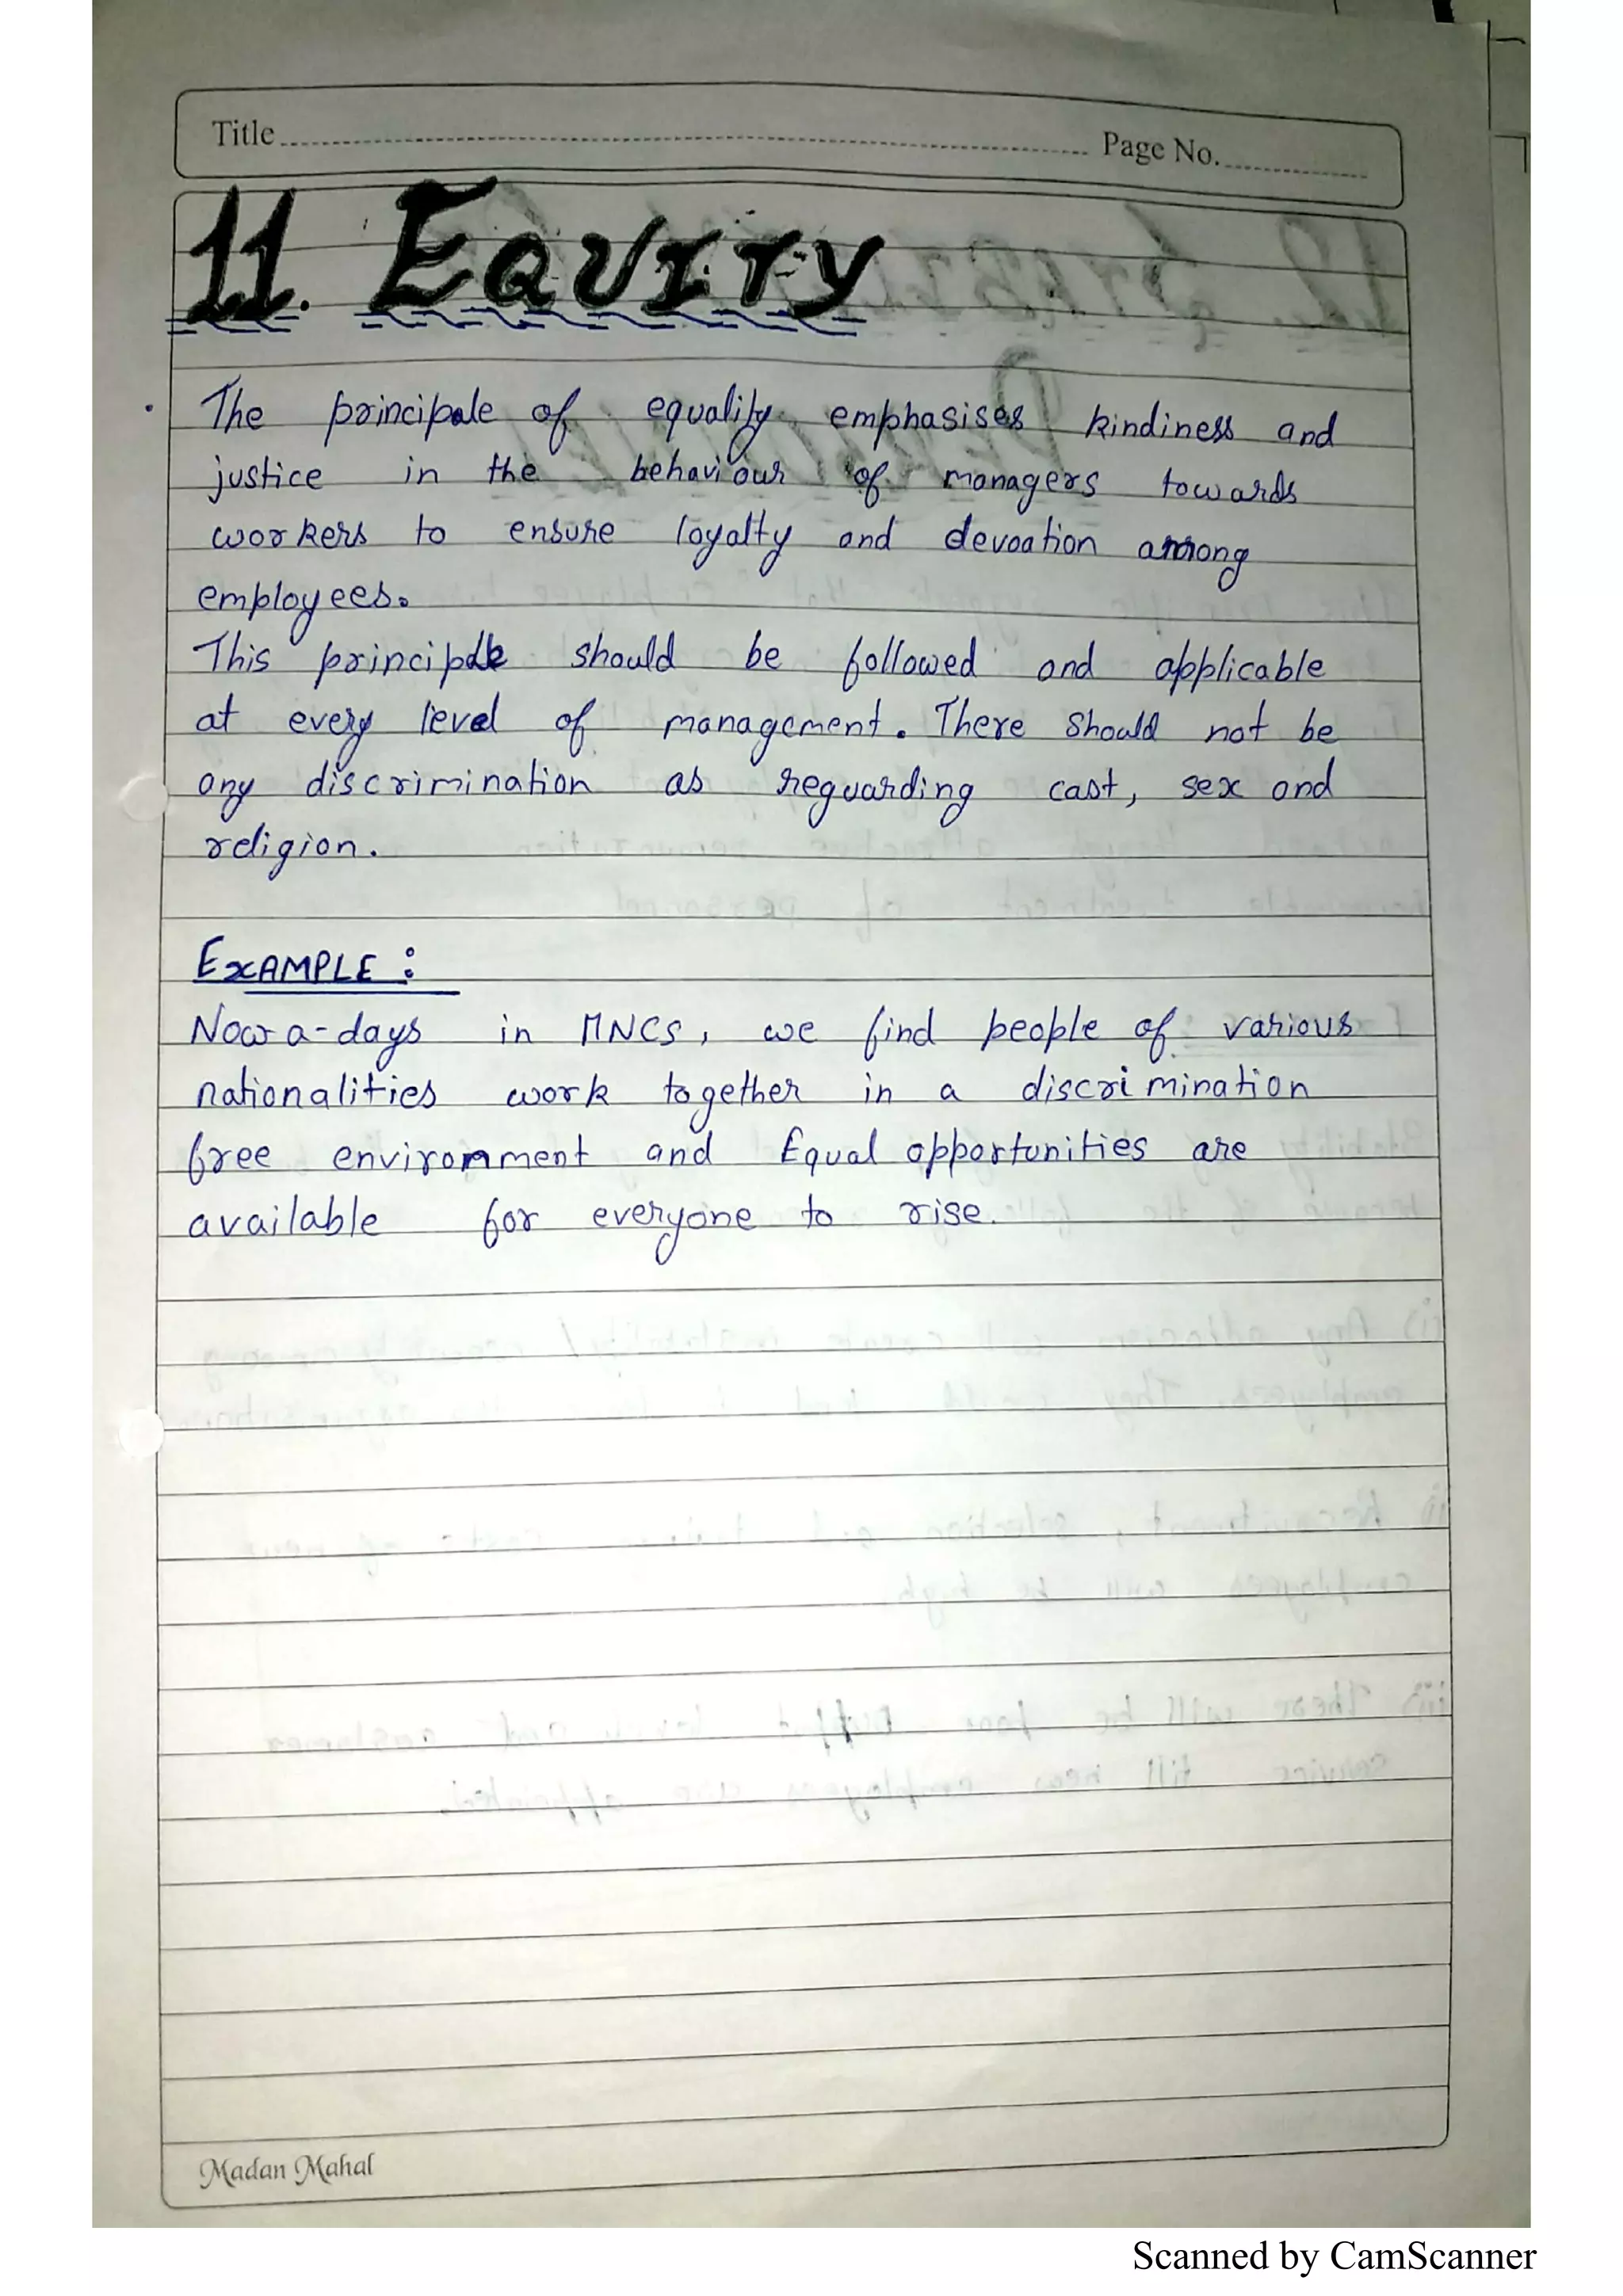 Title
Page No.
11. EQUITY
The principale of equality emphasises kindiness and
justice in the behaviour of managers towards
workers to ensure loyalty and devoation among
employees.
This principle should be followed and applicable
at every level of management. There should not be
any discrimination as reguarding cast, sex and
religion.
EXAMPLE :
Now a-days in MNCS, we find people of various
nationalities work together in a discrimination
free environment and Equal opportunities are
available for everyone to rise.
Madan Mahal
Scanned by CamScanner